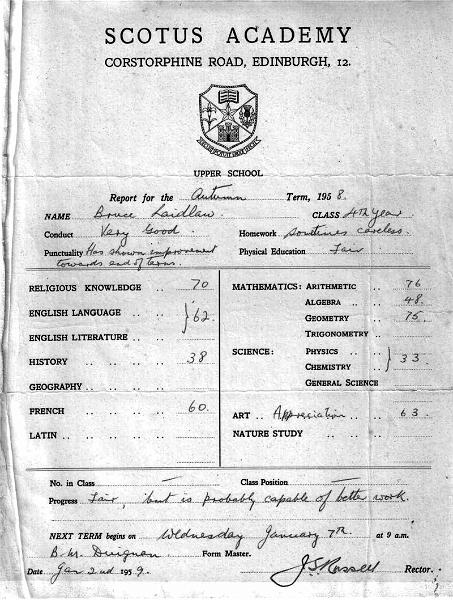 SCOTUS ACADEMY
CORSTORPHINE ROAD, EDINBURGH, 12.
UPPER SCHOOL
Report for the Autumn Term, 1958.
NAME Bruce Laidlaw CLASS 4TH Year
Conduct Very Good. Homework Somtimes careless.
Punctuality Has shown improvement Physical Education Fair
towards end of term.
RELIGIOUS KNOWLEDGE 70
ENGLISH LANGUAGE } 62.
ENGLISH LITERATURE
HISTORY 38
GEOGRAPHY
FRENCH 60.
LATIN
MATHEMATICS: ARITHMETIC 76
ALGEBRA 48.
GEOMETRY 75.
TRIGONOMETRY
SCIENCE: PHYSICS } 33.
CHEMISTRY
GENERAL SCIENCE
ART Appreciation 63.
NATURE STUDY
No. in Class — Class Position —
Progress Fair, but is probably capable of better work.
NEXT TERM begins on Wednesday January 7TH at 9 a.m.
B. M. Duignan Form Master.
Date Jan 2nd 1959. J S Russell Rector.